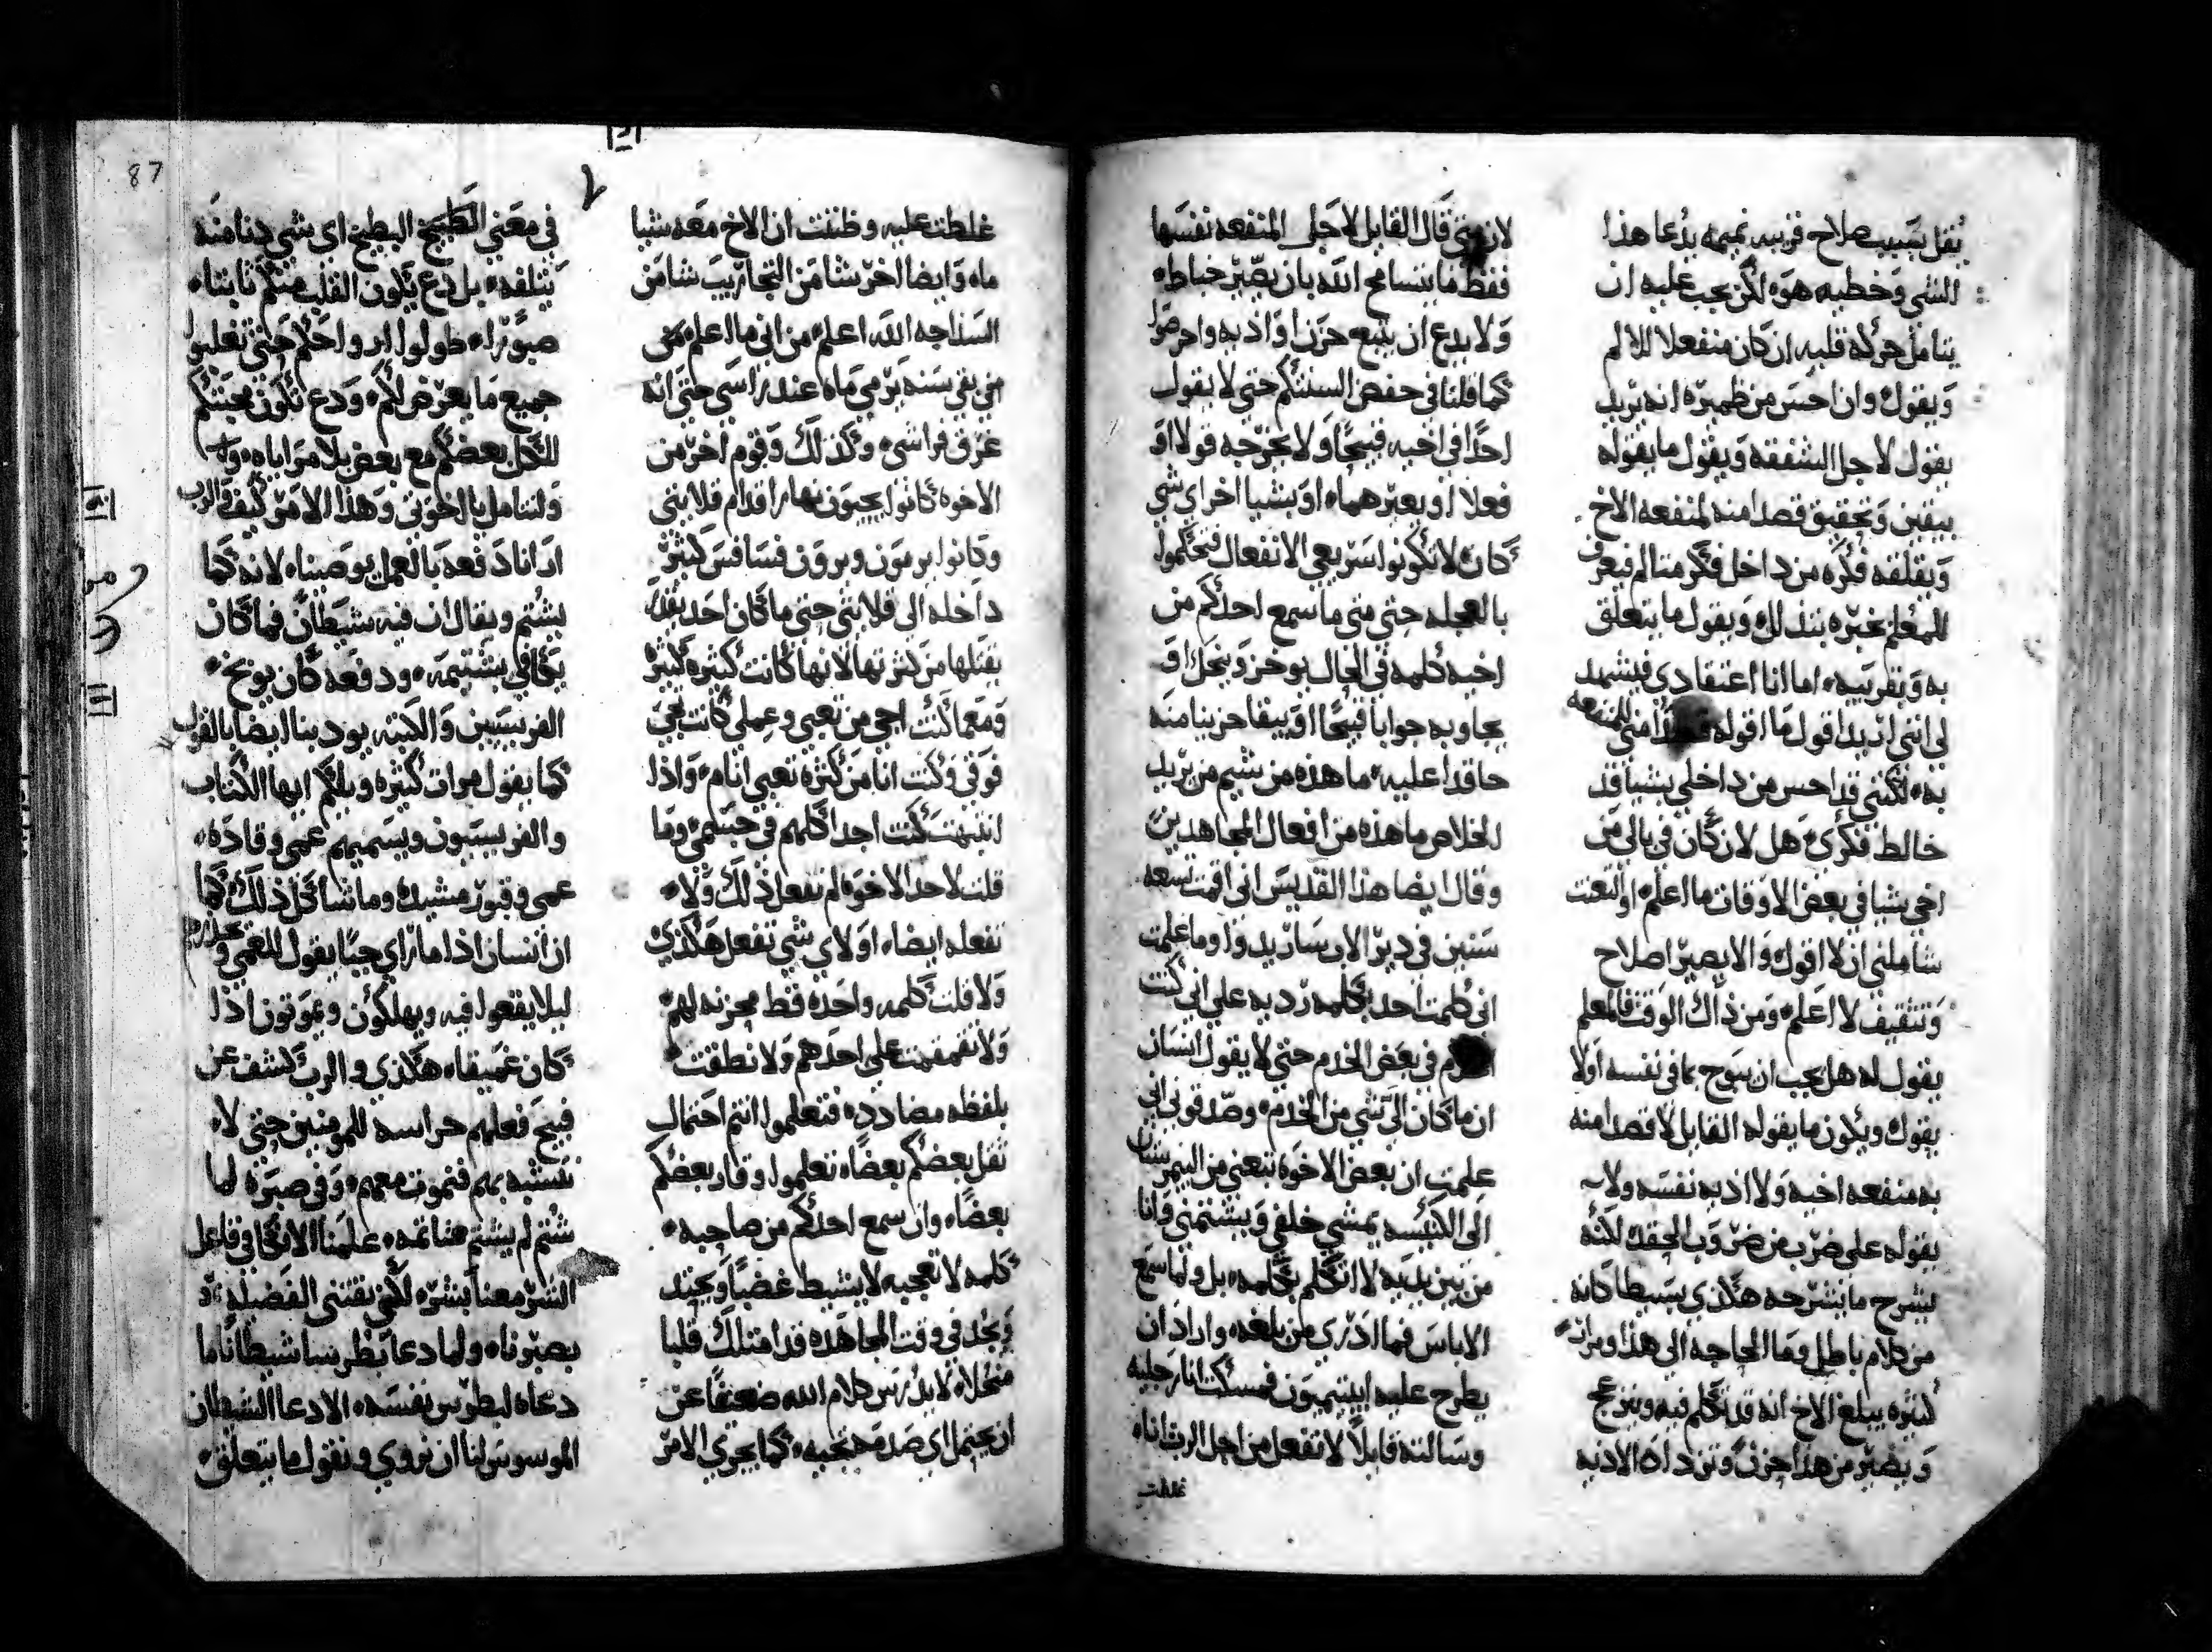 يقل بسبب صلاح قريبه نميمه يدعا هذا
الشي وخطيه هوه لكن يجب عليه ان
يتامل حركه قلبه ان كان منفعلا للالم
ويقول وان احسن من ظميره انه يريد
يقول لاجل الشفقه ويقول ما يقوله
بيقين وتحقيق قصدا منه لمنفعه الاخ
ويقلقه فكره من داخل فكر متالم فيعرف
للمعلم غيره بتذلل ويقول ما يتعلق
به وبقريبه اما انا اعتقادي فيشهد
لي انني اريد اقول ما اقوله قصدا مني للمنفعه
به لكنني قد احس من داخلي بشيا قد
خالط فكري هل لان كان في بالي من
اخي شيا في بعض الاوقات ما اعلم او لتعنت
شاملني ان لا اقول والا يصير اصلاح
وتثقيف لا اعلم ومن ذاك الوقت فالمعلم
يقول له هل يجب ان يبوح بما في نفسه اولا
يقول ويكون ما يقوله القايل لا قصدا منه
به منفعه اخيه ولا اذيه نفسه ولا
يقوله على ضرب من ضروب الحقد لكنه
يشرح ما يشرحه هكذي بسيطا كانه
من كلام باطل وما الحاجه الى هذا ومرات
كثيره يبلغ الاخ انه قد تكلم فيه وينزعج
ويصير من هذا حزن وتزداد الاذيه
لان متى قال القايل لاجل المنفعه نفسها
فقط فما يتسامح الله بان يصير خباط
ولا يدع ان يتبع حزن او اذيه واحرصوا
كما قلنا في حفض السنتكم حتي لا يقول
احدا في اخيه قبيحا ولا يخرجه قولا او
فعلا او يعبر هما او بشيا اخر اي شي
كان لا تكونوا سريعي الانفعال فتحكموا
بالعجله حتي متى ما سمع احدكم من
اخيه كلمه في الحال يوخز وينحل او
يجاوبه جوابا قبيحا او يبقا حزينا منه
حاقدا عليه ما هذه من شيم من يريد
الخلاص ما هذه من افعال المجاهدين
وقال ايضا هذا القديس اني اقمت تسعه
سنين في دير الاب ساريدوا وما علمت
اني كلمت احد بكلمه رديه على اني كنت
اخدم في بعض الخدم حتي لا يقول انسان
ان ما كان الي شي من الخدم وصدقوني اني
علمت ان بعض الاخوه تتعني من البيمرستان
الى الكنيسه يمشي خلفي ويشتمني وانا
من بين يديه لا اتكلم بكلمه بل ولما سمع
الاباس فما ادري من بلغه واراد ان
يطرح عليه ايبتيميون فمسكت انا رجليه
وسالته قايلا لا تفعل من اجل الرب انا
غلطت
غلطت عليه وظننت ان الاخ معه شيا
ماه وايضا اخر شا من التجاريب شا من
السذاجه الله اعلم من اني ما اعلم متى
من بقي سنه يرمي ماه عند راسي حتي انه
غرق فراشي وكذلك وقوم اخر من
الاخوه كانوا يجيون نهارا قدام قلايتي
وكانوا يرمون ويرون فسافس كثير
داخله الى قلايتي حتى ما كان احد يقدر
يقتلها من كثرتها لانها كانت كثيره كثير
ومعما كنت اجي من تعبي وعملي كانت تجي
فوقي وكنت انا من كثره تعبي انام واذا
انتبهت كنت اجد اكلهم في جسمي وما
قلت لاحد الاخوه لم تفعل ذلك ولا
تفعله ايضا او لاي شي تفعل هكذي
ولا قلت كلمه واحده قط محزنه لهم
ولا تقمقمت على احدهم ولا نطقت
بلفظه مضادده فتعلموا انتم احتمال
ثقل بعضكم بعضا تعلموا وقار بعضكم
بعضا وان سمع احدكم من صاحبه
كلمه لا تعجبه لا يشيط غضبا ويحتد
ويجد في وقت المجاهده قد امتلك قلبا
منحلا لا يدرس كلام الله ضعيفا عن
ان يحتمل اي صدمه تجيه كما يجري الامر
في معني الطبيخ البطيخ اي شي دنا منه
يتلفه بل دع يكون القلب منكم ثابتا
صبورا طولوا ارواحكم حتي تغلبوا
جميع ما يعرض لكم ودع تكون محبتكم
للكل بعضكم مع بعض بلا مراياه
ولنتامل يا اخوتي وهذا الامر كيف والرب
ارانا دفعه بالعمل بوصينا لانه كما
يشتم ويقال ان فيه شيطان فما كان
يكافي بشتيمه ودفعه كان يوبخ
الفريسيين والكتبه يودينا ايضا بالقول
كما يقول مرات كثيره ويلكم ايها الكتاب
والفريسيون ويسميهم عمي وقاده
عمي وقبور مشيده وما شاكل ذلك كما
ان انسان اذا ما راي جبا يقول للعمي
ليلا يقعوا فيه ويهلكون ويموتون اذا
كان عميقا هكذي والرب كشف عن
قبيح فعلهم حراسه للمومنين حتي لا
نتشبه بهم فنموت معهم وفي صبره لما
شتم لم يشتم هنا تمه علمنا الا نكافي فاعل
الشر معنا بشره لكي نقتني الفضيله
بصبرنا ولما دعا بطرس شيطانا ما
دعاه لبطرس نفسه الا دعا الشيطان
الموسوس لنا ان نروي ونقول ما يتعلق
87